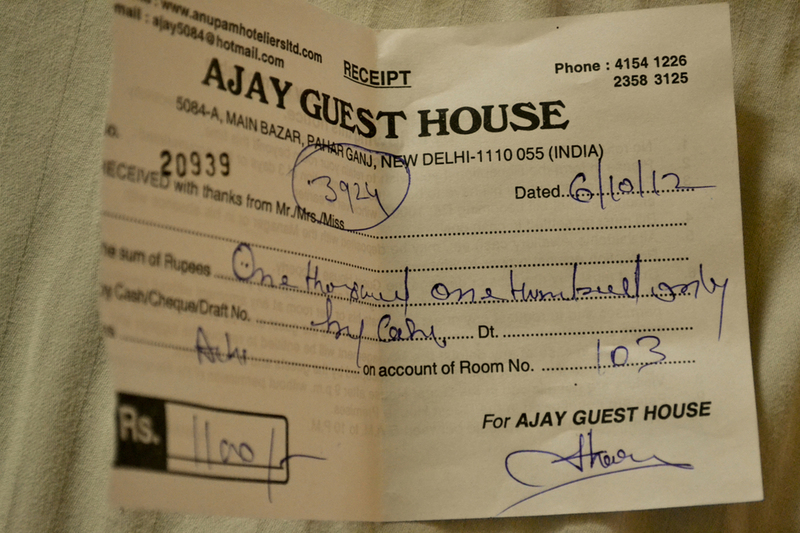 www.anupamhoteliersltd.com
mail : ajay5084@hotmail.com
RECEIPT
Phone : 4154 1226
2358 3125
AJAY GUEST HOUSE
5084-A, MAIN BAZAR, PAHAR GANJ, NEW DELHI-1110 055 (INDIA)
o. 20939
3924
Dated 6/10/12
RECEIVED with thanks from Mr./Mrs./Miss
he sum of Rupees One thousand one hundred only
y Cash/Cheque/Draft No. by Cash. Dt.
on account of Room No. 103
Rs. 1100/-
For AJAY GUEST HOUSE